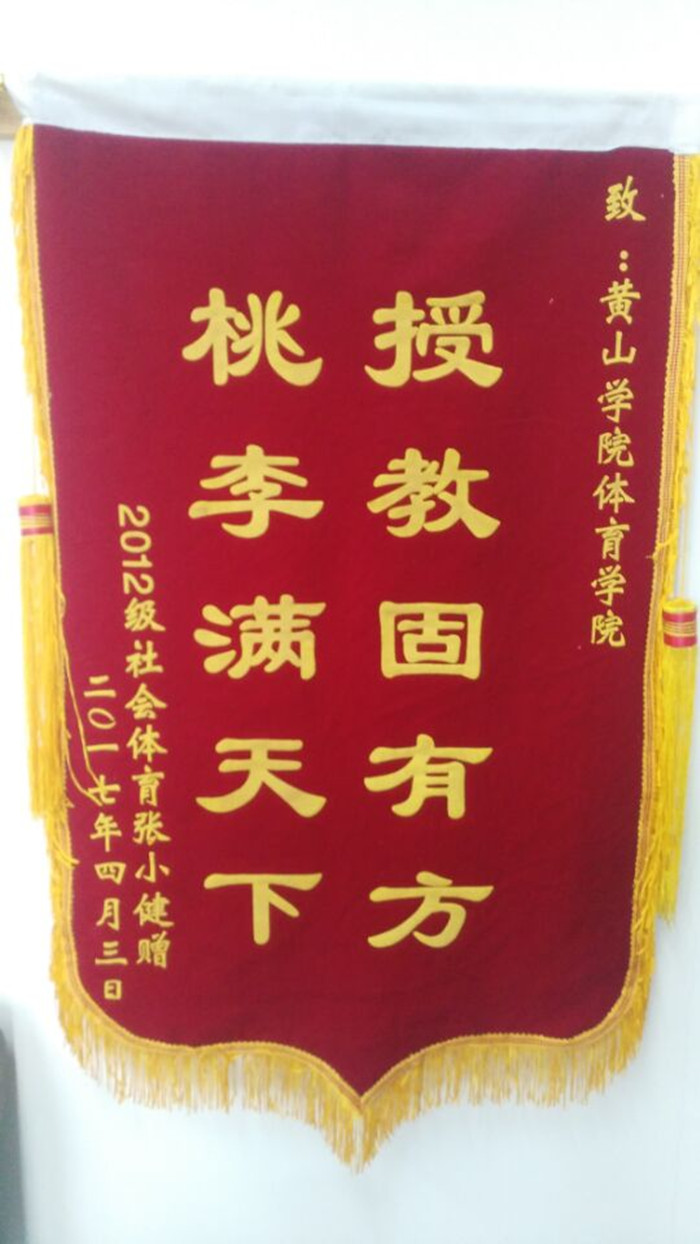 致：黄山学院体育学院
授教固有方
桃李满天下
2012级社会体育张小健赠
二〇一七年四月三日